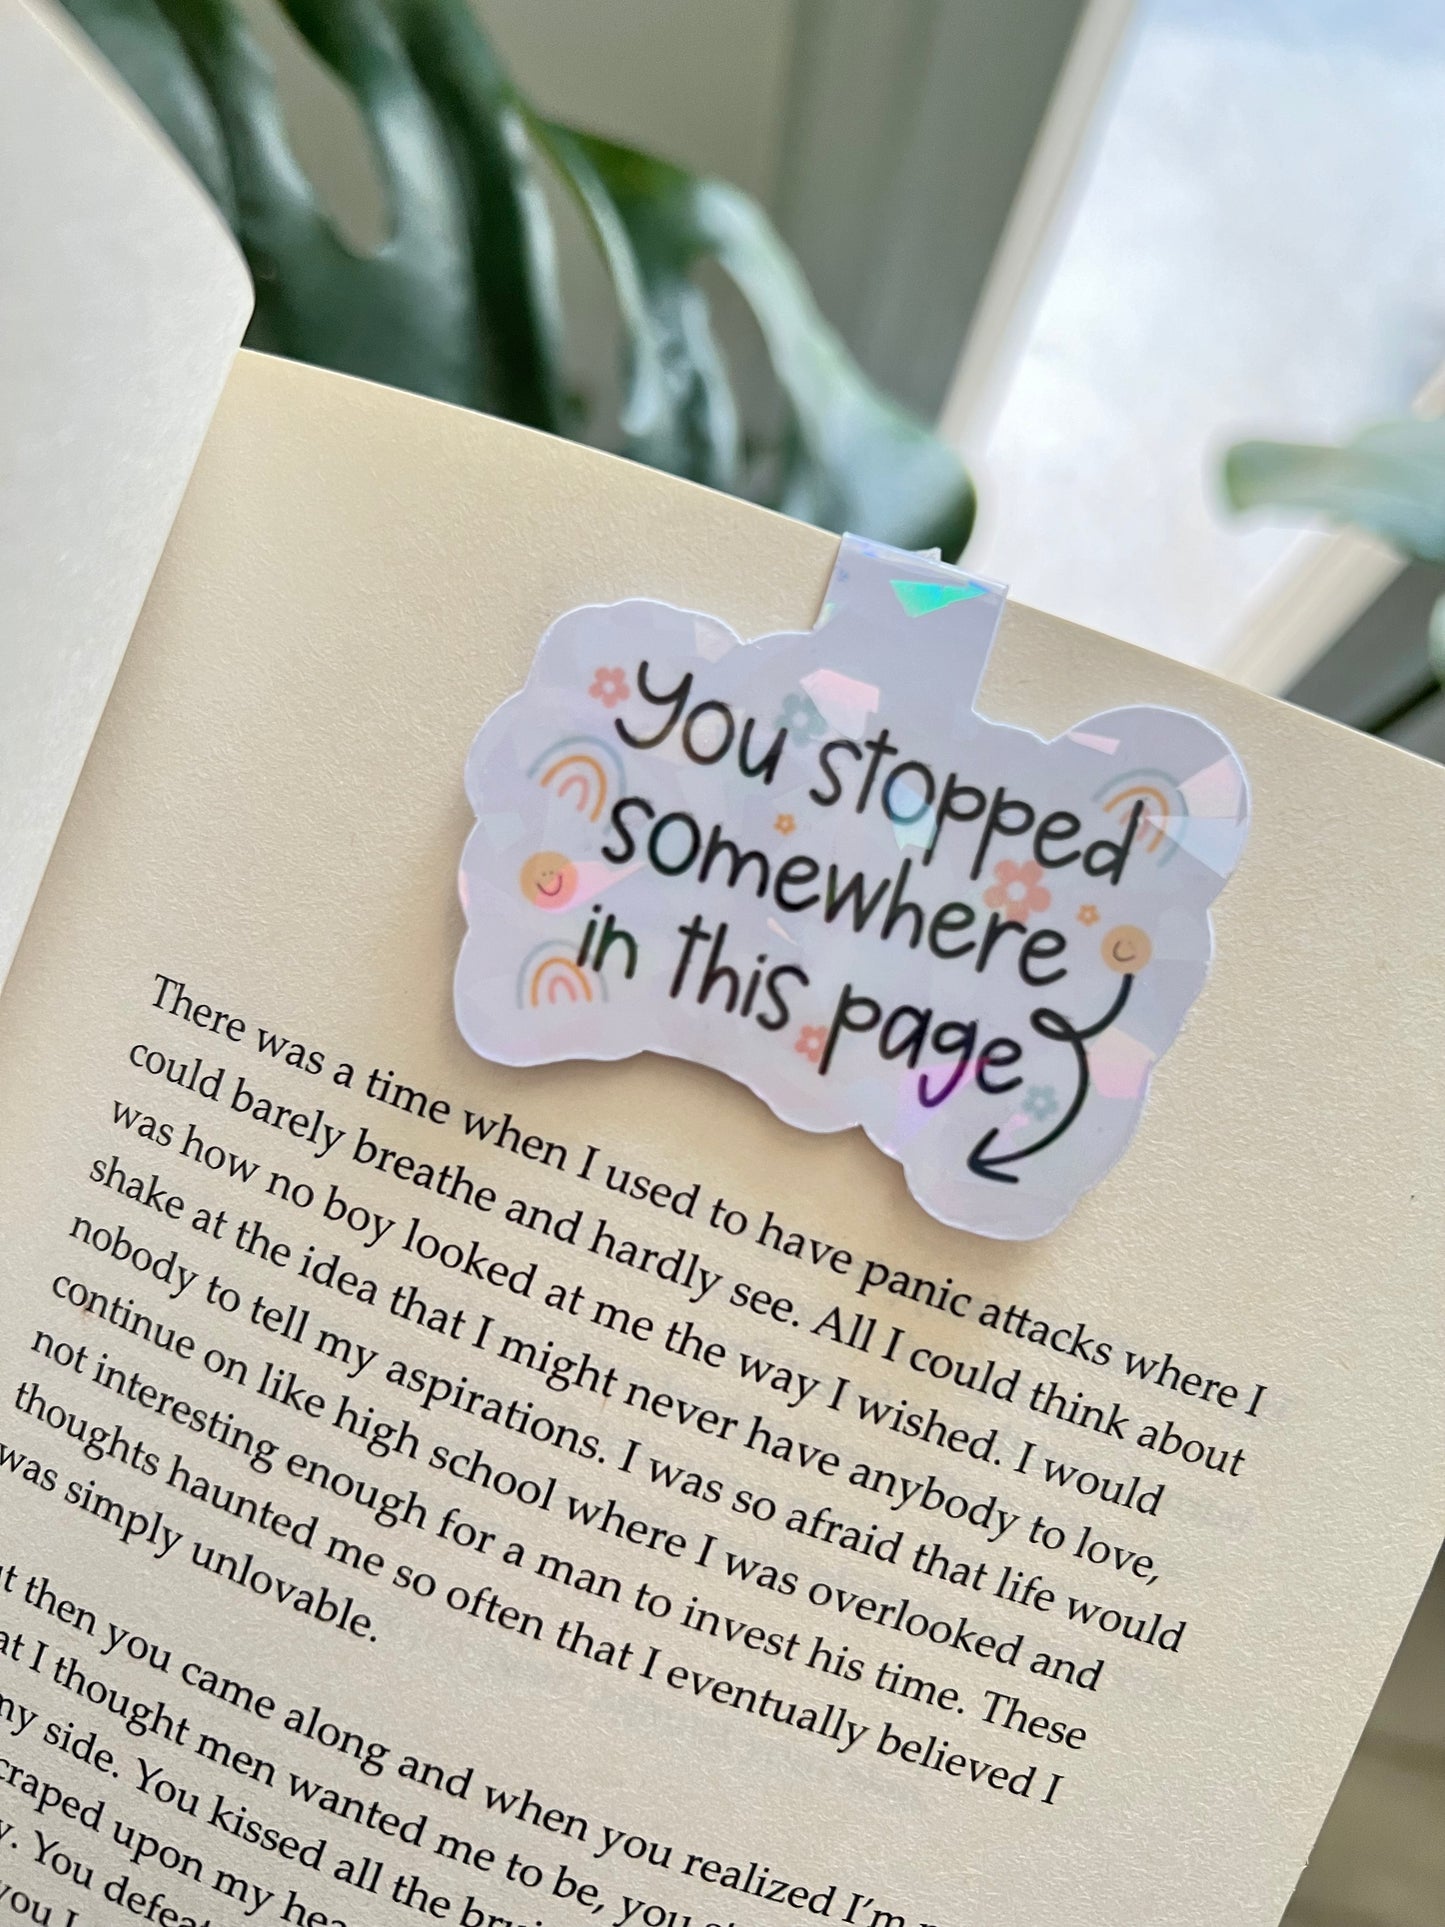 you stopped
somewhere
in this page
There was a time when I used to have panic attacks where I
could barely breathe and hardly see. All I could think about
was how no boy looked at me the way I wished. I would
shake at the idea that I might never have anybody to love,
nobody to tell my aspirations. I was so afraid that life would
continue on like high school where I was overlooked and
not interesting enough for a man to invest his time. These
thoughts haunted me so often that I eventually believed I
was simply unlovable.
then you came along and when you realized I'm
I thought men wanted me to be, you
my side. You kissed all the
upon my
You
you I